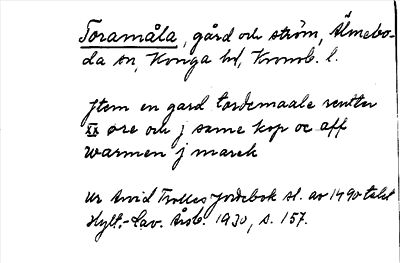 Toramåla, gård och ström, Älmebo-
da sn, Konga hd, Kronob. l.
Jtem en gard tordemaale rentter
xx øre och j same kop oc aff
warmen j marck
Ur Arvid Trolles Jordebok sl. av 1490 talet
Hylt.-Cav. Årsb. 1930, s. 157.